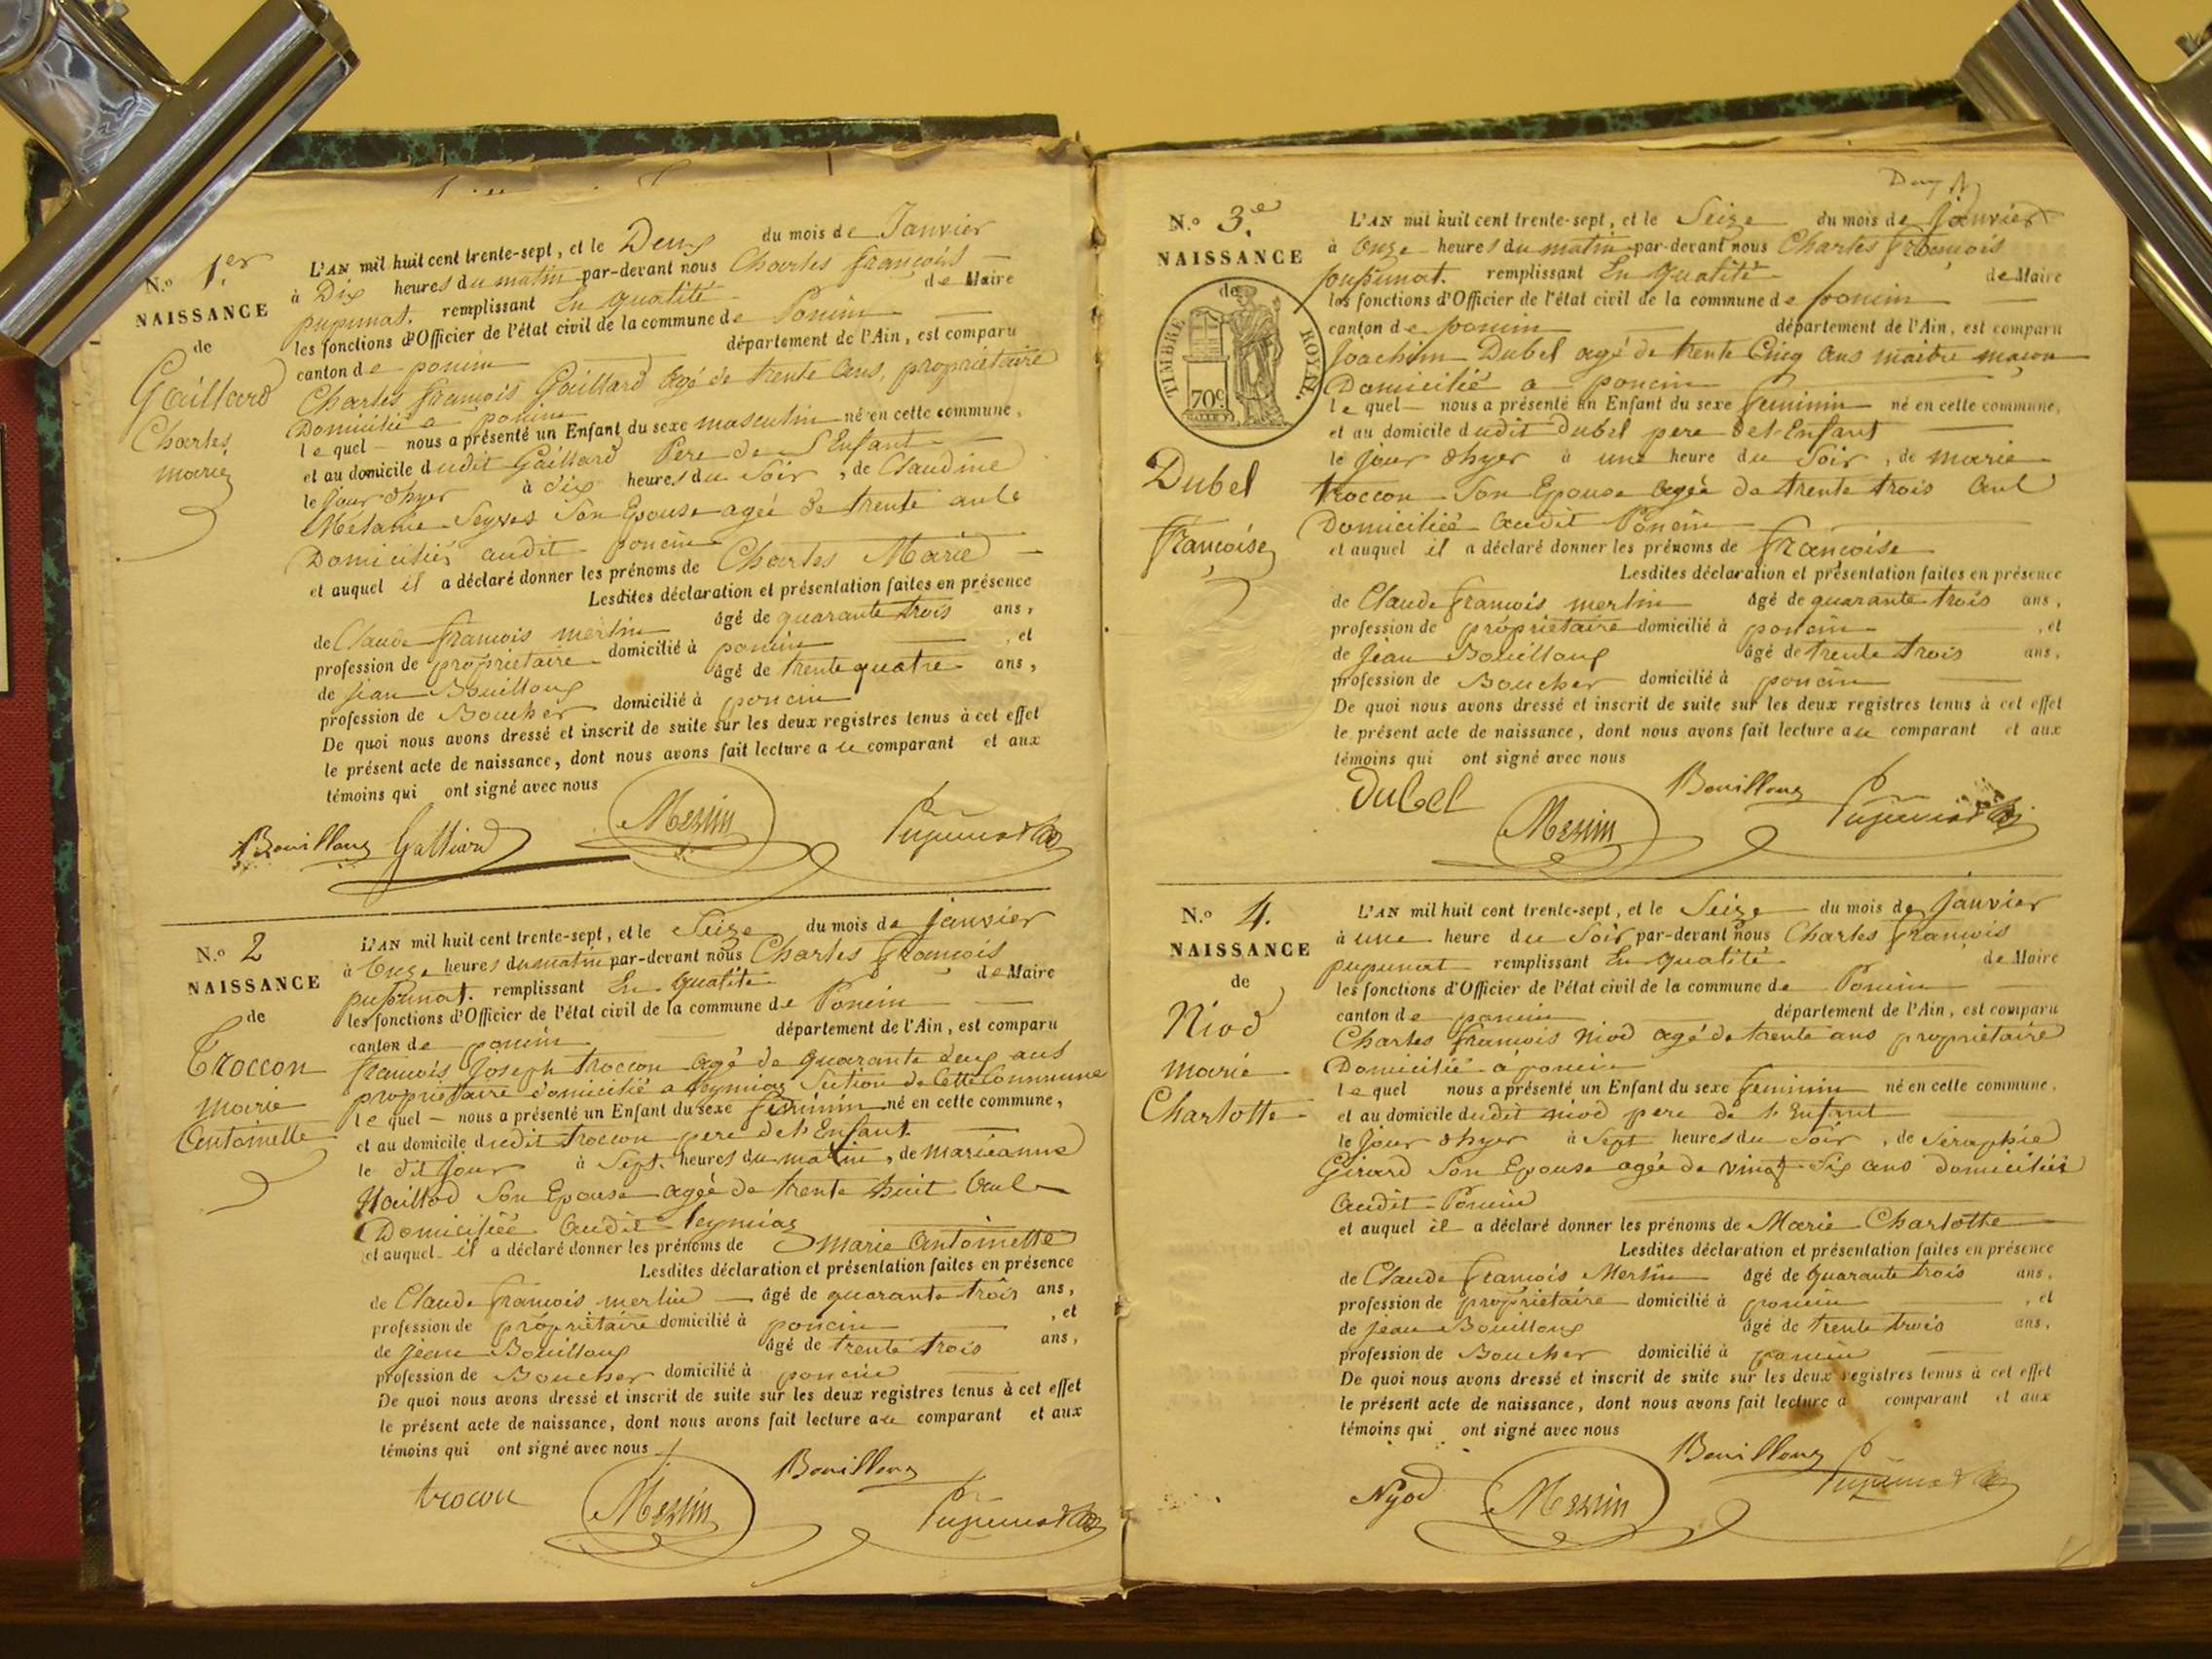 N.o 1.er
NAISSANCE
de
Gaillard
Charles
marie
L'AN mil huit cent trente-sept, et le Deux du mois de Janvier
à Dix heures du matin par-devant nous Charles françois
pupunat. remplissant En qualité de Maire
les fonctions d'Officier de l'état civil de la commune de Poncin
canton de poncin département de l'Ain, est comparu
Charles françois Gaillard agé de trente ans, propriétaire
Domicilié a poncin
lequel nous a présenté un Enfant du sexe masculin né en cette commune,
et au domicile dudit Gaillard Pere de l'Enfant
le jour dhyer à dix heures du Soir, de Claudine
Mélanie Seyves Son Epouse agée de trente ans
Domiciliée audit poncin
et auquel il a déclaré donner les prénoms de Charles Marie
Lesdites déclaration et présentation faites en présence
de Claude françois merlin âgé de quarante trois ans,
profession de propriétaire domicilié à poncin, et
de jean Bouilloux âgé de trente quatre ans,
profession de Boucher domicilié à poncin
De quoi nous avons dressé et inscrit de suite sur les deux registres tenus à cet effet
le présent acte de naissance, dont nous avons fait lecture au comparant et aux
témoins qui ont signé avec nous
Bouilloux Galliard Merlin Pupunat
N.o 2
NAISSANCE
de
Troccon
marie
Antoinette
L'AN mil huit cent trente-sept, et le Seize du mois de janvier
à Onze heures du matin par-devant nous Charles françois
pupunat. remplissant En qualité de Maire
les fonctions d'Officier de l'état civil de la commune de Poncin
canton de poncin département de l'Ain, est comparu
françois Joseph troccon agé de quarante deux ans
propriétaire domicilié a leymiaz Section de Cette Commune
lequel nous a présenté un Enfant du sexe féminin né en cette commune,
et au domicile dudit troccon pere de l'Enfant
le dit jour à Sept heures du matin, de marieanne
Son Epouse agée de trente huit ans
Domiciliée audit leymiaz
et auquel il a déclaré donner les prénoms de marie Antoinette
Lesdites déclaration et présentation faites en présence
de Claude françois merlin âgé de quarante trois ans,
profession de propriétaire domicilié à poncin, et
de jean Bouilloux âgé de trente trois ans,
profession de Boucher domicilié à poncin
De quoi nous avons dressé et inscrit de suite sur les deux registres tenus à cet effet
le présent acte de naissance, dont nous avons fait lecture au comparant et aux
témoins qui ont signé avec nous
trocon Merlin Bouilloux Pupunat
N.o 3.e
NAISSANCE
de
TIMBRE ROYAL.
70c
Dubel
françoise
L'AN mil huit cent trente-sept, et le Seize du mois de janvier
à Onze heures du matin par-devant nous Charles françois
pupunat. remplissant En qualité de Maire
les fonctions d'Officier de l'état civil de la commune de poncin
canton de poncin département de l'Ain, est comparu
Joachim Dubel agé de trente Cinq ans maitre maçon
Domicilié a poncin
lequel nous a présenté un Enfant du sexe feminin né en cette commune,
et au domicile dudit Dubel pere de l'Enfant
le jour dhyer à une heure du Soir, de marie
troccon Son Epouse agée de trente trois ans
Domiciliée audit Poncin
et auquel il a déclaré donner les prénoms de françoise
Lesdites déclaration et présentation faites en présence
de Claude françois merlin âgé de quarante trois ans,
profession de propriétaire domicilié à poncin, et
de jean Bouilloux âgé de trente trois ans,
profession de Boucher domicilié à poncin
De quoi nous avons dressé et inscrit de suite sur les deux registres tenus à cet effet
le présent acte de naissance, dont nous avons fait lecture au comparant et aux
témoins qui ont signé avec nous
Dubel Merlin Bouilloux Pupunat
N.o 4.
NAISSANCE
de
Niod
marie
Charlotte
L'AN mil huit cent trente-sept, et le Seize du mois de janvier
à une heure du Soir par-devant nous Charles françois
pupunat remplissant En qualité de Maire
les fonctions d'Officier de l'état civil de la commune de Poncin
canton de poncin département de l'Ain, est comparu
Charles françois Niod agé de trente ans propriétaire
Domicilié a poncin
lequel nous a présenté un Enfant du sexe feminin né en cette commune,
et au domicile dudit niod pere de l'Enfant
le jour dhyer à Sept heures du Soir, de Séraphie
Girard Son Epouse agée de vingt Six ans domiciliée
audit Poncin
et auquel il a déclaré donner les prénoms de Marie Charlotte
Lesdites déclaration et présentation faites en présence
de Claude françois Merlin âgé de quarante trois ans,
profession de propriétaire domicilié à poncin, et
de jean Bouilloux âgé de trente trois ans,
profession de Boucher domicilié à poncin
De quoi nous avons dressé et inscrit de suite sur les deux registres tenus à cet effet
le présent acte de naissance, dont nous avons fait lecture a comparant et aux
témoins qui ont signé avec nous
Nyod Merlin Bouilloux Pupunat